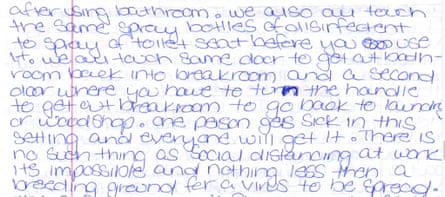 after using bathroom. we also all touch
the same spray bottles of disinfectent
to spray of toilet seat before you use
it. we all touch same door to get out bath-
room back into breakroom and a second
door where you have to turn the handle
to get out breakroom to go back to laundr
or woodshop. one person gets sick in this
setting and everyone will get it. There is
no such thing as social distancing at work
its impossible and nothing less then a
breeding ground for a virus to be spread.